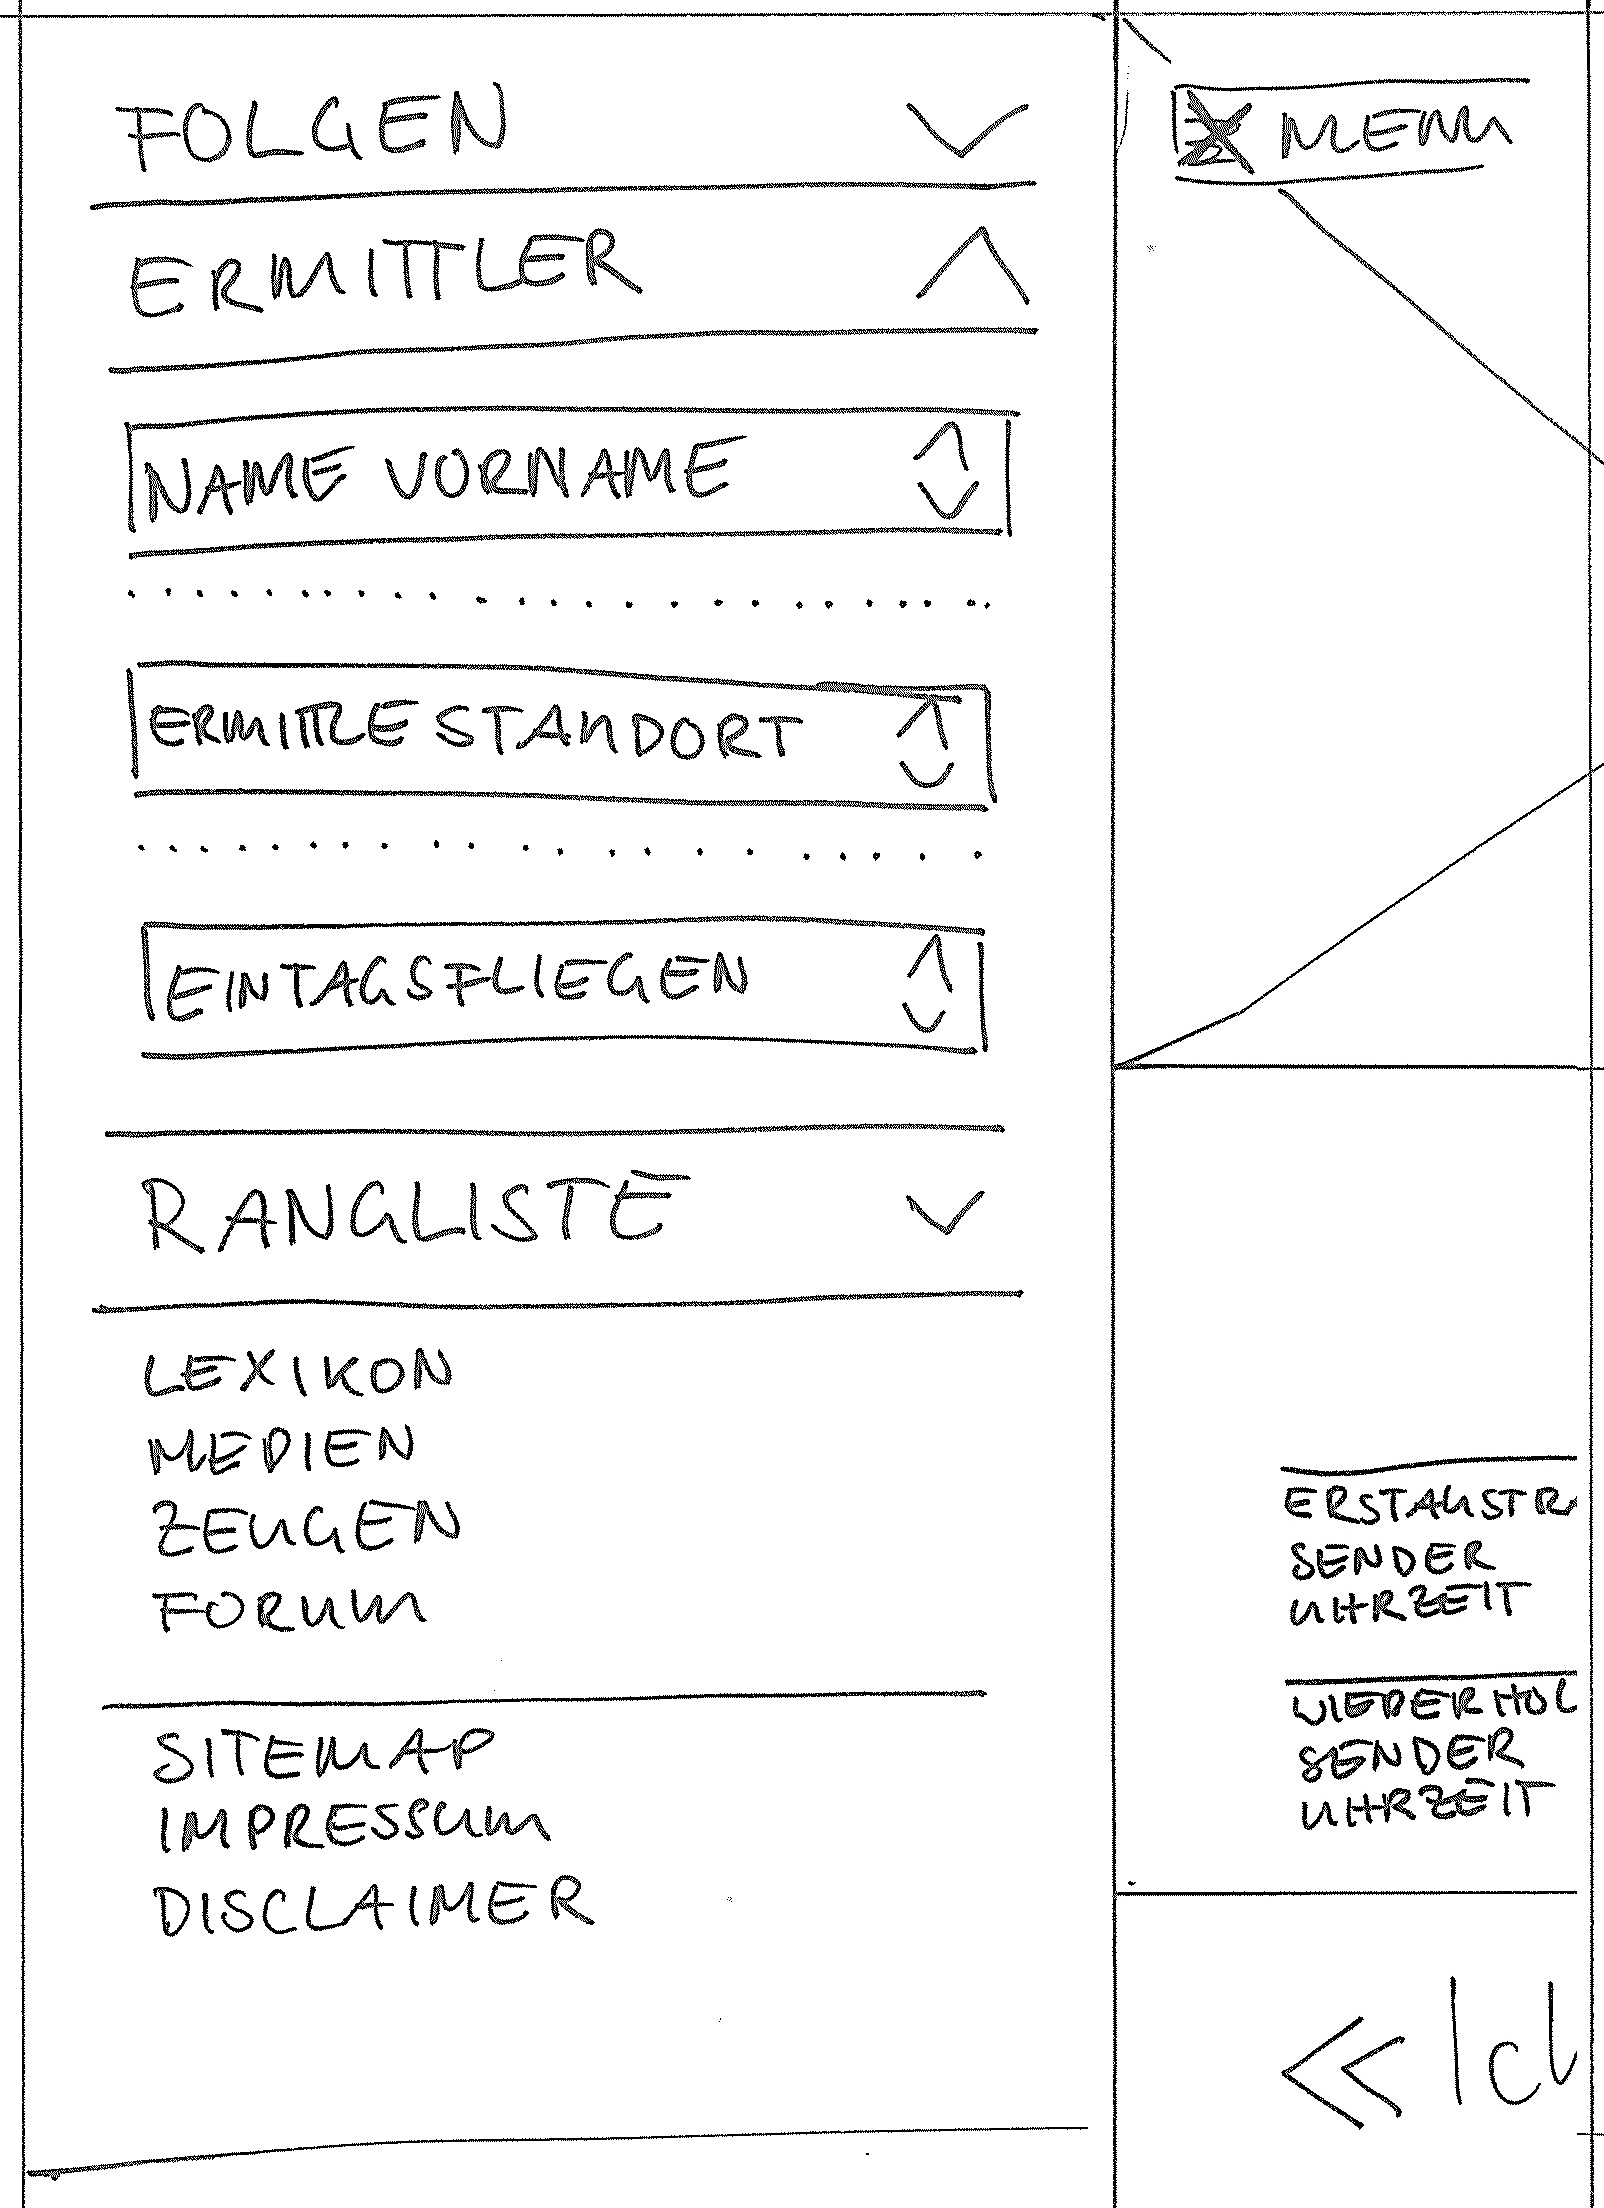 FOLGEN
ERMITTLER
NAME VORNAME
ERMITTLE STANDORT
EINTAGSFLIEGEN
RANGLISTE
LEXIKON
MEDIEN
ZEUGEN
FORUM
SITEMAP
IMPRESSUM
DISCLAIMER
MENU
ERSTAUSTR
SENDER
UHRZEIT
WIEDERHOL
SENDER
UHRZEIT